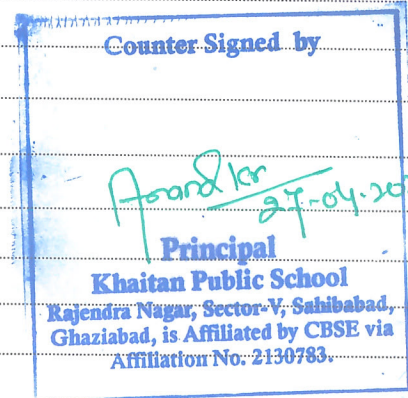 Counter Signed by
Anand Kr
27-04-20
Principal
Khaitan Public School
Rajendra Nagar, Sector-V, Sahibabad,
Ghaziabad, is Affiliated by CBSE via
Affiliation No. 2130783.